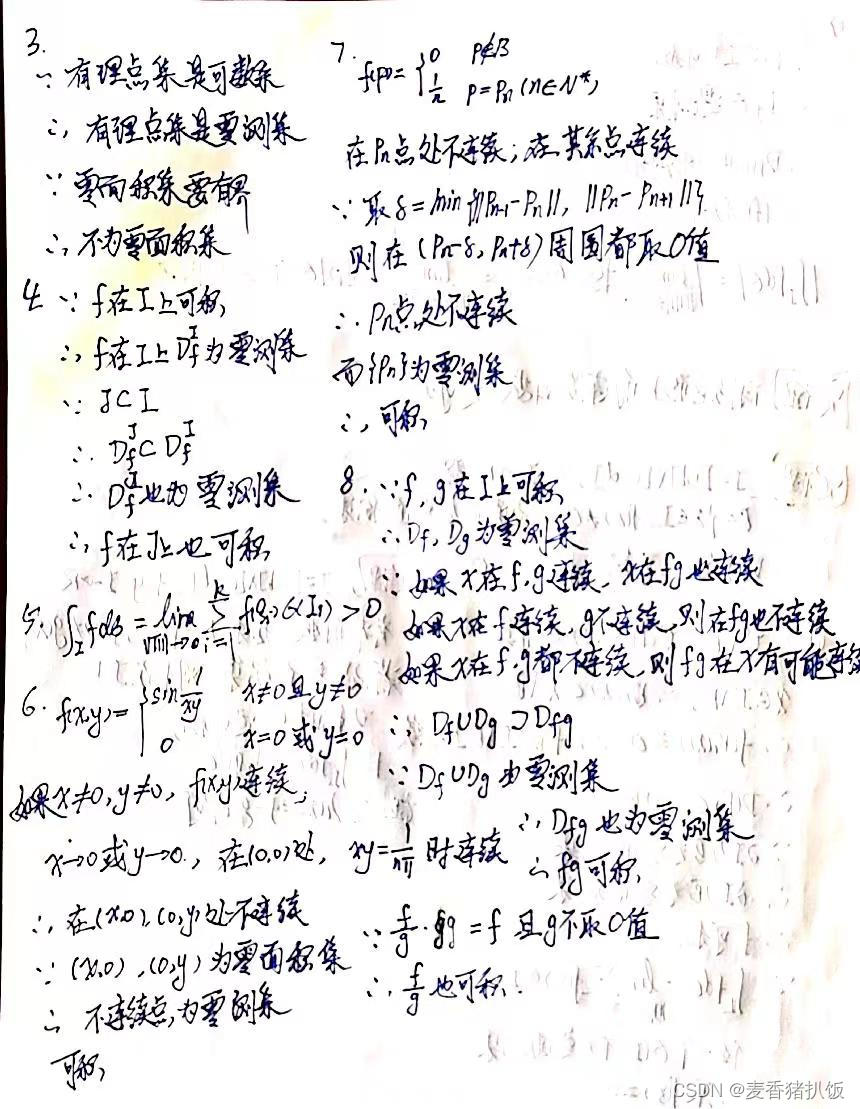 3.
∵ 有理点集是可数集
∴ 有理点集是零测集
∵ 零面积集要有界
∴ 不为零面积集
4. ∵ f在I上可积
∴ f在I上D_f^I为零测集
∵ J⊂I
∴ D_f^J⊂D_f^I
∴ D_f^J也为零测集
∴ f在J上也可积
5. ∫_I fdσ = lim_{||π||→0} ∑_{i=1}^{k} f(ξ_i)σ(I_i) > 0
6. f(x,y)= { sin 1/xy x≠0且y≠0
0 x=0或y=0
如果x≠0,y≠0, f(x,y)连续;
x→0或y→0, 在(0,0)处, xy=1/nπ 时连续
∴ 在(x,0),(0,y)处不连续
∵ (x,0),(0,y)为零面积集
∴ 不连续点为零测集
可积
7. f(p)= { 0 p∉B
1/n p=P_n(n∈N*)
在P_n点处不连续; 在其余点连续
∵ 取δ=min{||P_{n-1}-P_n||, ||P_n-P_{n+1}||}
则在(P_n-δ, P_n+δ)周围都取0值
∴ P_n点处不连续
而{P_n}为零测集
∴ 可积
8. ∵ f, g在I上可积
∴ D_f, D_g为零测集
∵ 如果x在f,g连续, x在fg也连续
如果x在f连续,g不连续,则在fg也不连续
如果x在f,g都不连续,则fg在x有可能连续
∴ D_f∪D_g⊃D_fg
∵ D_f∪D_g为零测集
∴ D_fg也为零测集
∴ fg可积
∵ f/g·g = f 且g不取0值
∴ f/g也可积.
CSDN @麦香猪扒饭